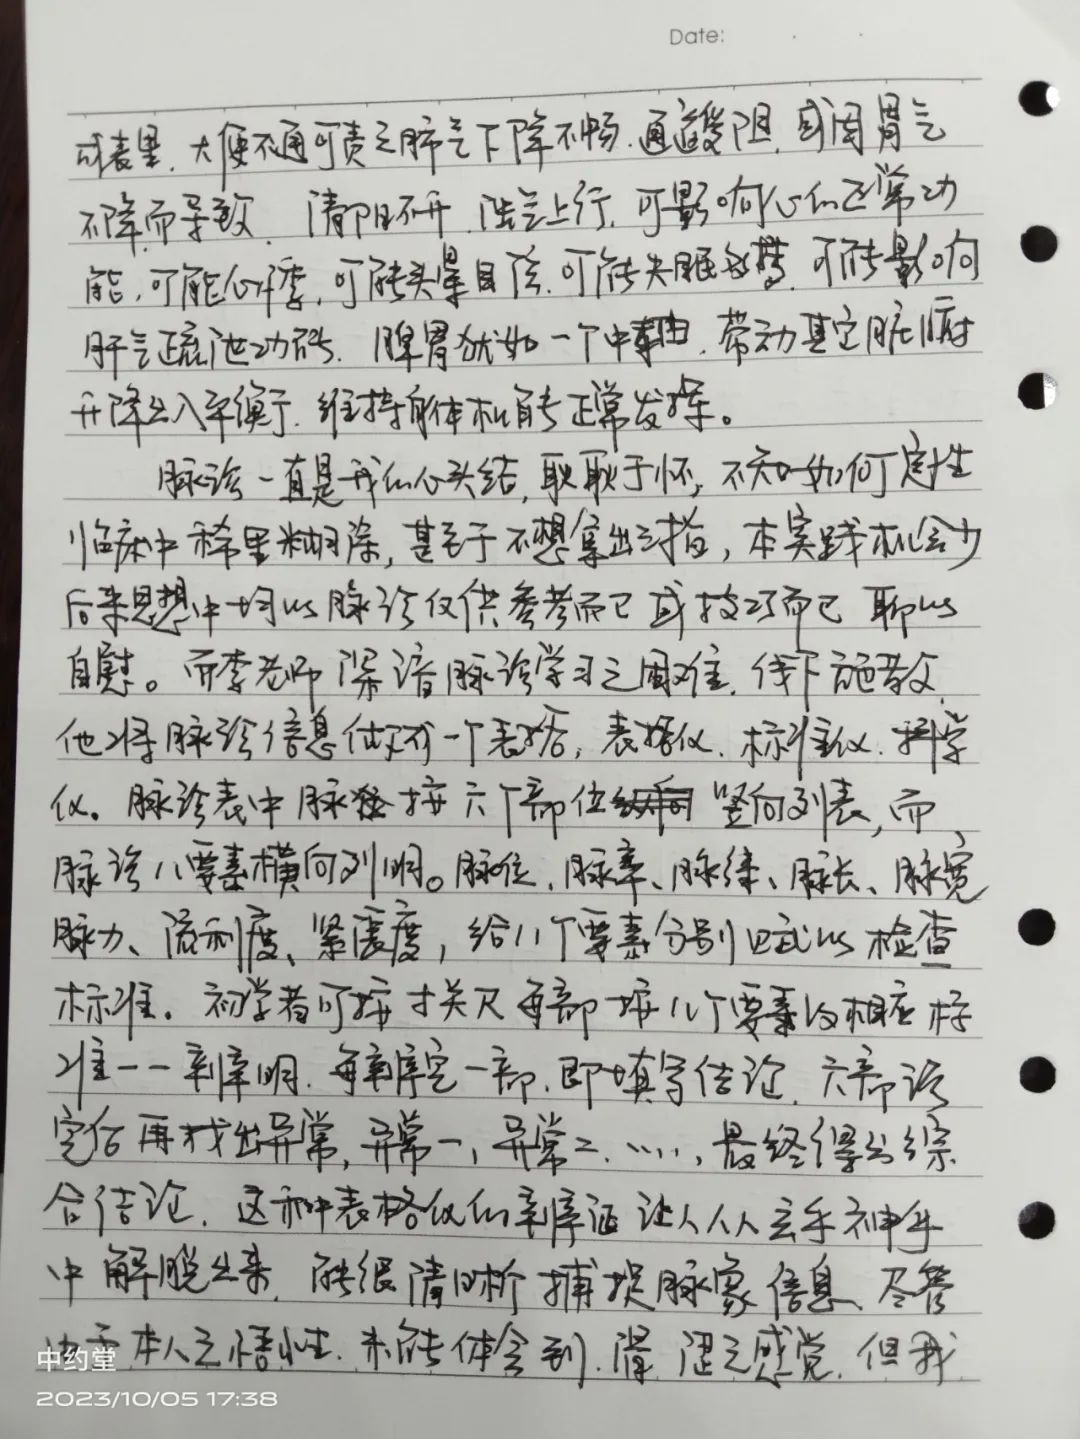 Date:
成表里．大便不通可责之肺气下降不畅．通道受阻．或因胃气
不降．而导致．清阳不升．浊气上行．可影响心的正常功
能．可能心悸，可能头晕目眩．可能失眠多梦．可能影响
肝气疏泄功能．脾胃犹如一个中轴．带动其它脏腑
升降出入平衡．维持身体机能正常发挥。
脉诊一直是我的心头结，耿耿于怀，不知如何定性
临床中稀里糊涂，甚至于不想拿出三指，本实践机会少
后来思想中均以脉诊仅供参考而已或技巧而已聊以
自慰。而李老师深谙脉诊学习之困难．线下施教．
他将脉诊信息做成一个表格，表格化．标准化．科学
化。脉诊表中脉按六个部位竖向列表，而
脉诊八要素横向列明。脉位、脉率、脉律、脉长、脉宽
脉力、流利度、紧张度，给八个要素分别赋以检查
标准．初学者可按寸关尺每部按八个要素的相应标
准一一辨明．每辨完一部．即填写结论．六部诊
完后再找出异常，异常一，异常二．……，最终得出综
合结论．这种表格化的辨证让人从玄乎神乎
中解脱出来．能很清晰捕捉脉象信息、尽管
本人之悟性．未能体会到．滑．涩之感觉．但我
中约堂
2023/10/05 17:38